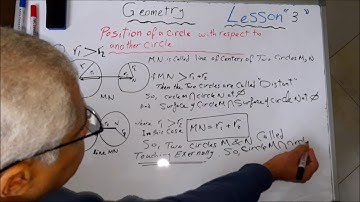 Geometry
Lesson "3"
Position of a circle with respect to
another Circle
r₁ > r₂
M N is called line of Centers of Two Circles M, N
if MN > r₁ + r₂
Then the Two Circles are Called "Distant"
So, circle M ∩ Circle N at ∅
And Surface of Circle M ∩ Surface of Circle N at ∅
where r₁ > r₂
MN = r₁ + r₂
In this Case
So, Two circles M & N Called
Touching Externally. So, Circle M ∩
line MN